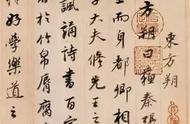 東方朔
方朔曰蘇秦張
而身都卿相
子大夫修先王之
諷誦詩書百家
於竹帛脣腐
好學樂道之